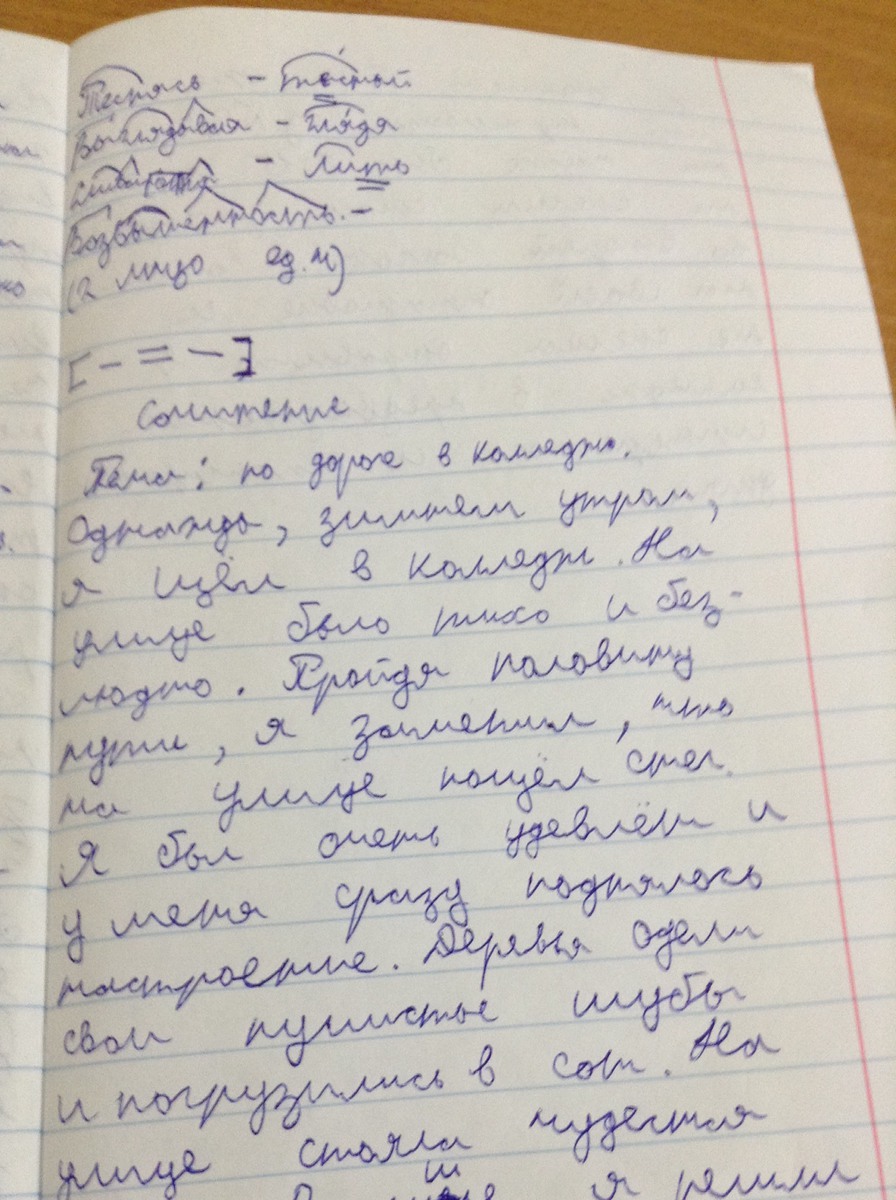 Теснясь - тесный
Выглядывая - глядя
- лить
Возвышенность. -
(2 лицо ед.ч)
[- = -]
Сочинение
Тема: по дороге в колледж.
Однажды, зимнем утром,
я щёл в колледж. На
улице было тихо и без-
людно. Пройдя половину
пути, я заметил, что
на улице пощёл снег.
Я был очень удевлён и
у меня сразу поднялось
настроение. Деревья одели
свои пушистые шубы
и погрузились в сон. На
улице стояла чудесная
я решил